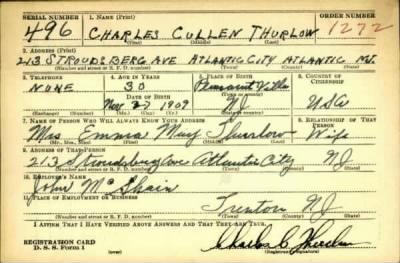 SERIAL NUMBER 1. NAME (Print) ORDER NUMBER
496 CHARLES CULLEN THURLOW 1272
(First) (Middle) (Last)
2. ADDRESS (Print)
213 STROUDSBERG AVE ATLANTIC CITY ATLANTIC NJ.
(Number and street or R. F. D. number) (Town) (County) (State)
3. TELEPHONE 4. AGE IN YEARS 5. PLACE OF BIRTH 6. COUNTRY OF CITIZENSHIP
NONE 30 Pleasantville
DATE OF BIRTH
Nov 27 1909 NJ USA
(Exchange) (Number) (Mo.) (Day) (Yr.) (State or country)
7. NAME OF PERSON WHO WILL ALWAYS KNOW YOUR ADDRESS 8. RELATIONSHIP OF THAT PERSON
Mrs Emma May Thurlow Wife
(Mr., Mrs., Miss) (First) (Middle) (Last)
9. ADDRESS OF THAT PERSON
213 Stroudsberg ave Atlantic City NJ
(Number and street or R. F. D. number) (Town) (County) (State)
10. EMPLOYER'S NAME
John McShain
11. PLACE OF EMPLOYMENT OR BUSINESS
Trenton NJ
(Number and street or R. F. D. number) (Town) (County) (State)
I AFFIRM THAT I HAVE VERIFIED ABOVE ANSWERS AND THAT THEY ARE TRUE.
REGISTRATION CARD
D. S. S. Form 1 (over) Charles C Thurlow
(Registrant's signature)